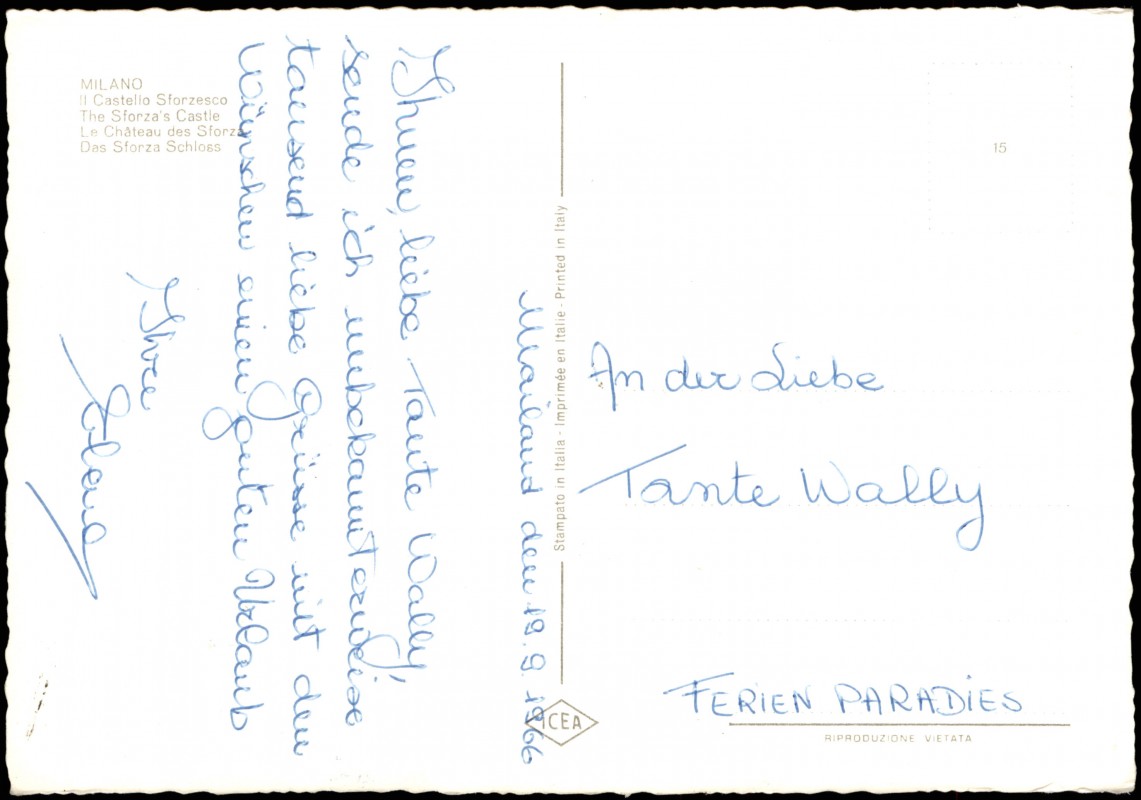 MILANO
Il Castello Sforzesco
The Sforza's Castle
Le Château des Sforza
Das Sforza Schloss
Mailand den 19.9.1966
Ihnen, liebe Tante Wally,
sende ich unbekannterweise
tausend liebe Grüsse mit den
Wünschen einen guten Urlaub
Ihre
Elena
Stampato in Italia - Imprimée en Italie - Printed in Italy
ICEA
15
An der Liebe
Tante Wally
FERIEN PARADIES
RIPRODUZIONE VIETATA